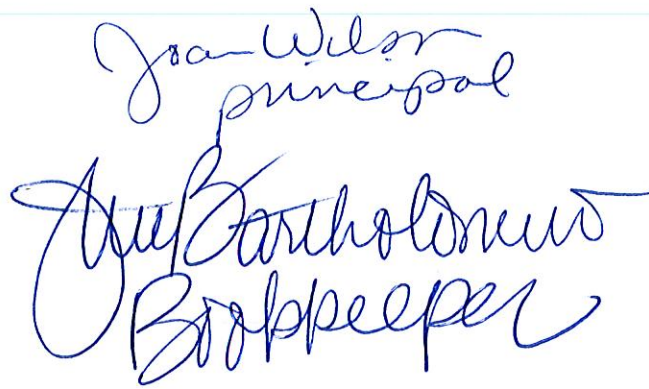 Joan Wilson
principal
Bartholomew
Bookkeeper